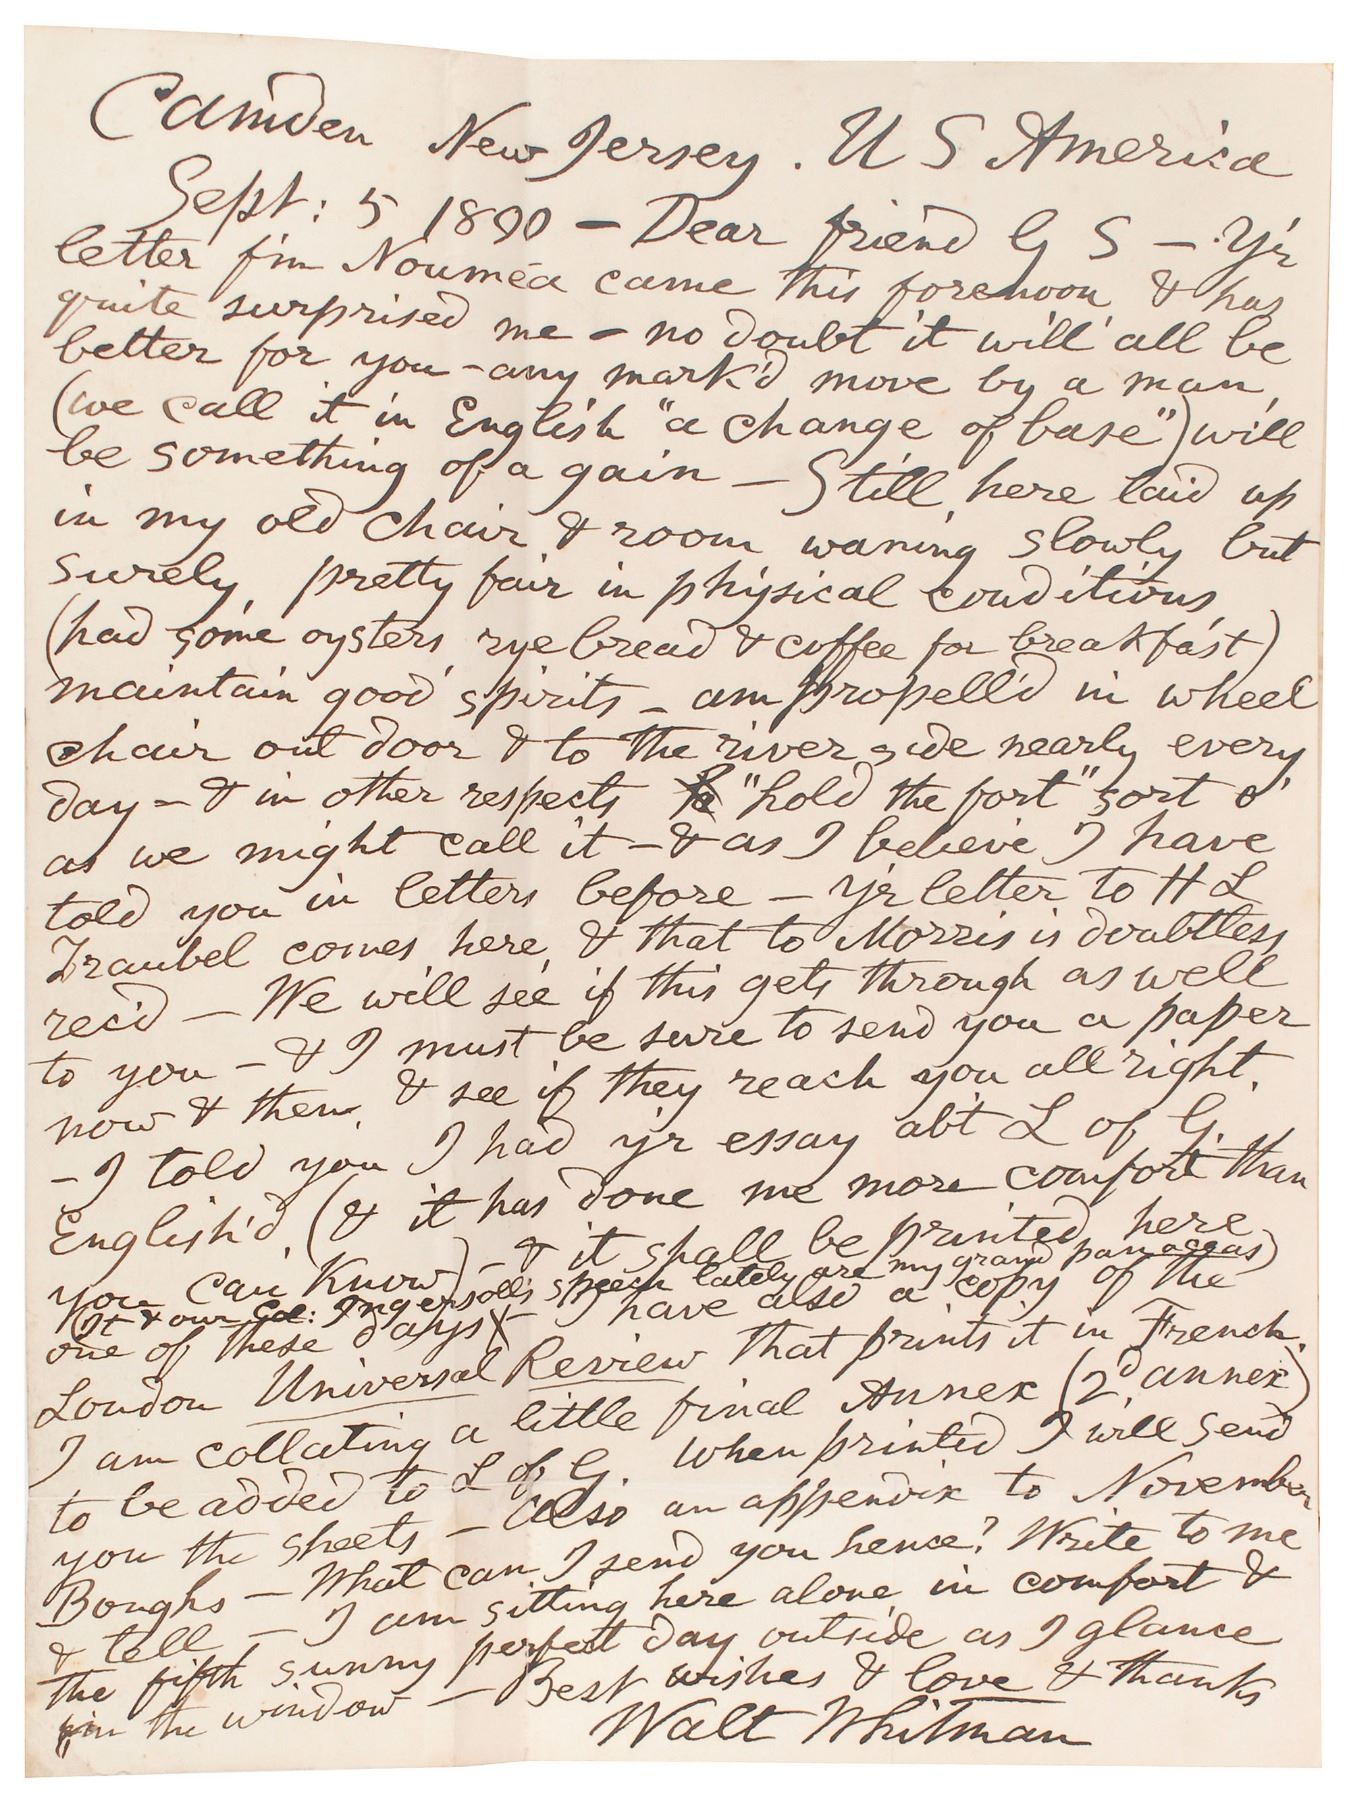 Camden New Jersey . U S America
Sept: 5 1890 – Dear friend G S – Y'r
letter f'm Nouméa came this forenoon & has
quite surprised me – no doubt it will all be
better for you – any mark'd move by a man,
(we call it in English "a change of base") will
be something of a gain – Still here laid up
in my old chair & room waning slowly but
surely, pretty fair in physical conditions
(had some oysters, rye bread & coffee for breakfast)
maintain good spirits – am propell'd in wheel
chair out door & to the river side nearly every
day – & in other respects "hold the fort" sort o'
as we might call it – & as I believe I have
told you in letters before – Y'r letter to H L
Traubel comes here, & that to Morris is doubtless
rec'd – We will see if this gets through as well
to you – & I must be sure to send you a paper
now & then, & see if they reach you all right.
– I told you I had y'r essay ab't L of G.
English'd, (& it has done me more comfort than
you can know) – & it shall be printed here
(It & our Col: Ingersoll's speech lately are my grand panaceas)
one of these days – I have also a copy of the
London Universal Review that prints it in French.
I am collating a little final Annex (2d annex)
to be added to L of G. When printed I will send
you the sheets – Also an appendix to November
Boughs – What can I send you hence? Write to me
& tell – I am sitting here alone in comfort &
the fifth sunny perfect day outside as I glance
in the window – Best wishes & love & thanks
Walt Whitman